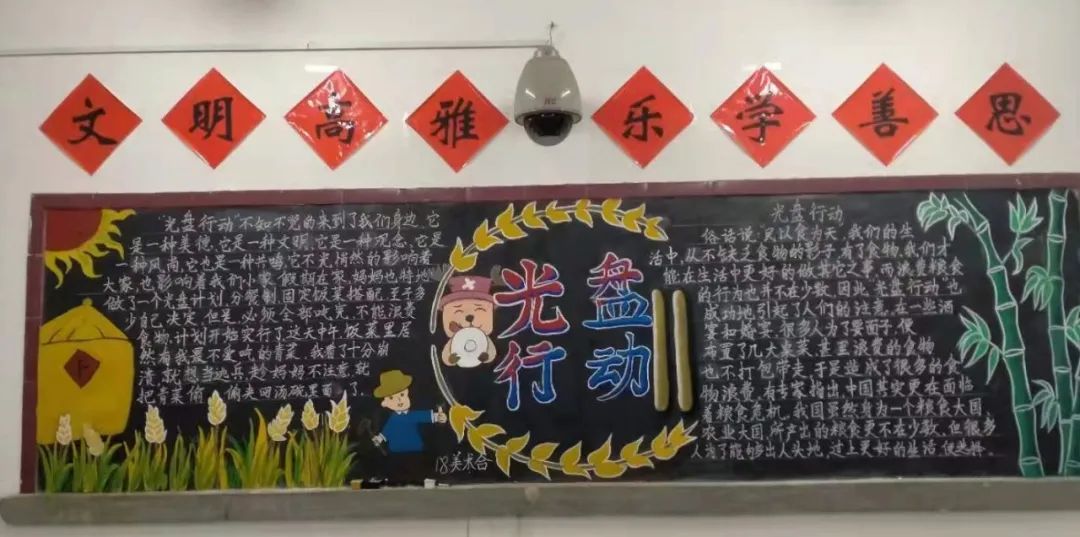 文明高雅 乐学善思
"光盘行动"不知不觉的来到了我们身边,它
是一种美德,它是一种文明,它是一种观念,它是
一种风尚,它也是一种共鸣,它不光悄然的影响着
大家,也影响着我们小家。假期在家,妈妈也特地
做了一个光盘计划,分餐制,固定饭菜搭配,至于多
少自己决定,但是,必须全部吃完,不能浪费
食物,计划开始实行了,这天中午,饭菜里居
然有我最不爱吃的青菜,我看了十分崩
溃,就想当逃兵,趁妈妈不注意,就
把青菜偷偷夹回汤碗里面了。
下
光盘
行动
18美术合
光盘行动
俗话说,民以食为天,我们的生
活中,从不缺乏食物的影子,有了食物,我们才
能在生活中更好的做其它之事,而浪费粮食
的行为也并不在少数,因此,光盘行动"也
成功地引起了人们的注意,在一些酒
宴和婚宴,很多人为了要面子,便
布置了几大桌菜,甚至浪费的食物
也不打包带走,于是造成了很多的食
物浪费,有专家指出,中国其实更在面临
着粮食危机,我国虽然身为一个粮食大国
农业大国,所产出的粮食更不在少数,但很多
人为了能够出人头地,过上更好的生活,便选择